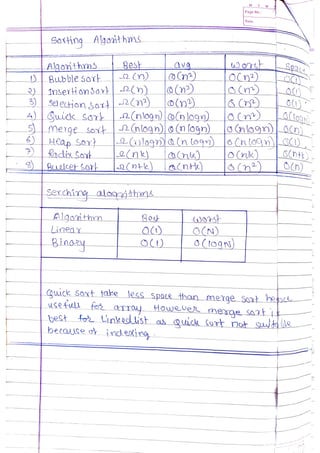 M T W
Page No.
Date
Sorting Algorithms
Algorithms Best avg worst space
1) Bubble sort Ω(n) Θ(n²) O(n²) O(1)
2) Insertion sort Ω(n) Θ(n²) O(n²) O(1)
3) Selection sort Ω(n²) Θ(n²) O(n²) O(1)
4) Quick sort Ω(nlogn) Θ(nlogn) O(n²) O(logn)
5) merge sort Ω(nlogn) Θ(nlogn) O(nlogn) O(n)
6) Heap sort Ω(nlogn) Θ(nlogn) O(nlogn) O(1)
7) Radix sort Ω(nk) Θ(nk) O(nk) O(n+k)
8) Bucket sort Ω(n+k) Θ(n+k) O(n²) O(n)
Serching
Algorithm Best worst
Linear O(1) O(N)
Binary O(1) O(logN)
Quick sort take less space than merge sort hence
usefull for array However merge sort is
best for Linkedlist as quick sort not
because of indexing.